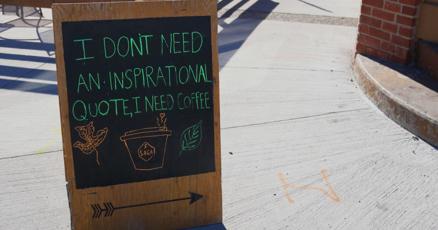 I DONT NEED
AN INSPIRATIONAL
QUOTE, I NEED COFFEE